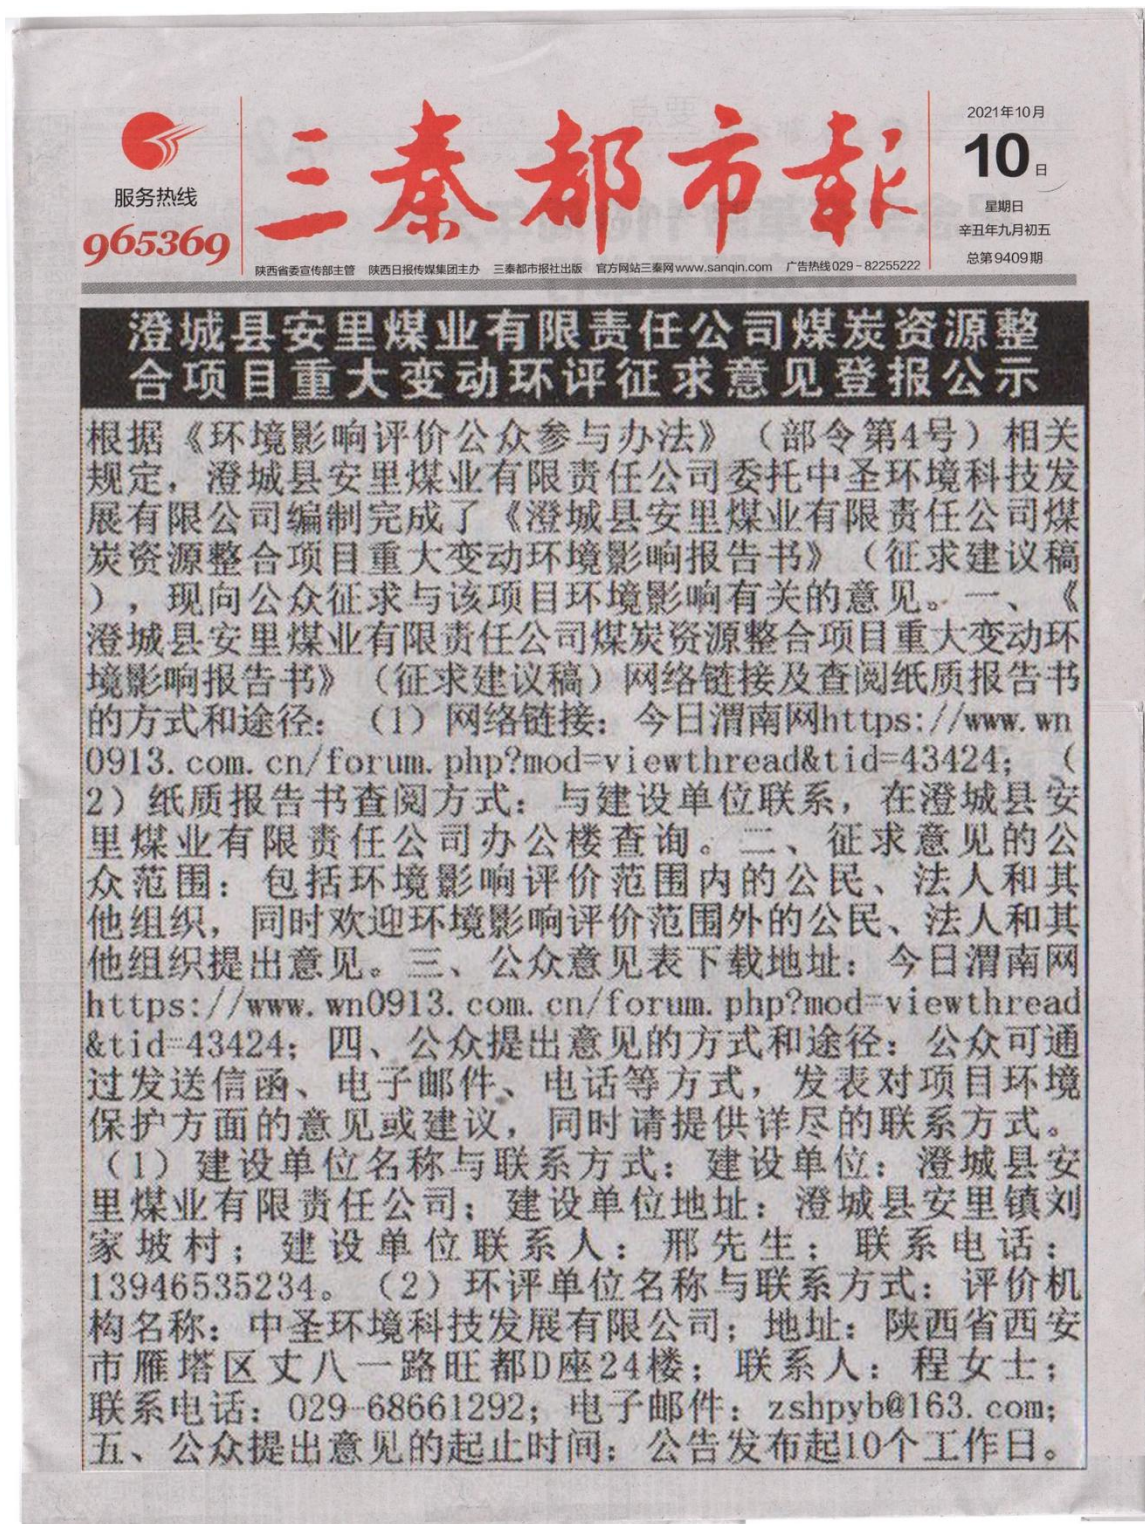 服务热线
965369
三秦都市报
2021年10月
10日
星期日
辛丑年九月初五
总第9409期
陕西省委宣传部主管 陕西日报传媒集团主办 三秦都市报社出版 官方网站三秦网www.sanqin.com 广告热线029-82255222
澄城县安里煤业有限责任公司煤炭资源整
合项目重大变动环评征求意见登报公示
根据《环境影响评价公众参与办法》（部令第4号）相关
规定，澄城县安里煤业有限责任公司委托中圣环境科技发
展有限公司编制完成了《澄城县安里煤业有限责任公司煤
炭资源整合项目重大变动环境影响报告书》（征求建议稿
），现向公众征求与该项目环境影响有关的意见。一、《
澄城县安里煤业有限责任公司煤炭资源整合项目重大变动环
境影响报告书》（征求建议稿）网络链接及查阅纸质报告书
的方式和途径：（1）网络链接：今日渭南网https://www.wn
0913.com.cn/forum.php?mod=viewthread&tid=43424；（
2）纸质报告书查阅方式：与建设单位联系，在澄城县安
里煤业有限责任公司办公楼查询。二、征求意见的公
众范围：包括环境影响评价范围内的公民、法人和其
他组织，同时欢迎环境影响评价范围外的公民、法人和其
他组织提出意见。三、公众意见表下载地址：今日渭南网
https://www.wn0913.com.cn/forum.php?mod=viewthread
&tid=43424；四、公众提出意见的方式和途径：公众可通
过发送信函、电子邮件、电话等方式，发表对项目环境
保护方面的意见或建议，同时请提供详尽的联系方式。
（1）建设单位名称与联系方式：建设单位：澄城县安
里煤业有限责任公司；建设单位地址：澄城县安里镇刘
家坡村；建设单位联系人：邢先生；联系电话：
13946535234。（2）环评单位名称与联系方式：评价机
构名称：中圣环境科技发展有限公司；地址：陕西省西安
市雁塔区丈八一路旺都D座24楼；联系人：程女士；
联系电话：029-68661292；电子邮件：zshpyb@163.com；
五、公众提出意见的起止时间：公告发布起10个工作日。